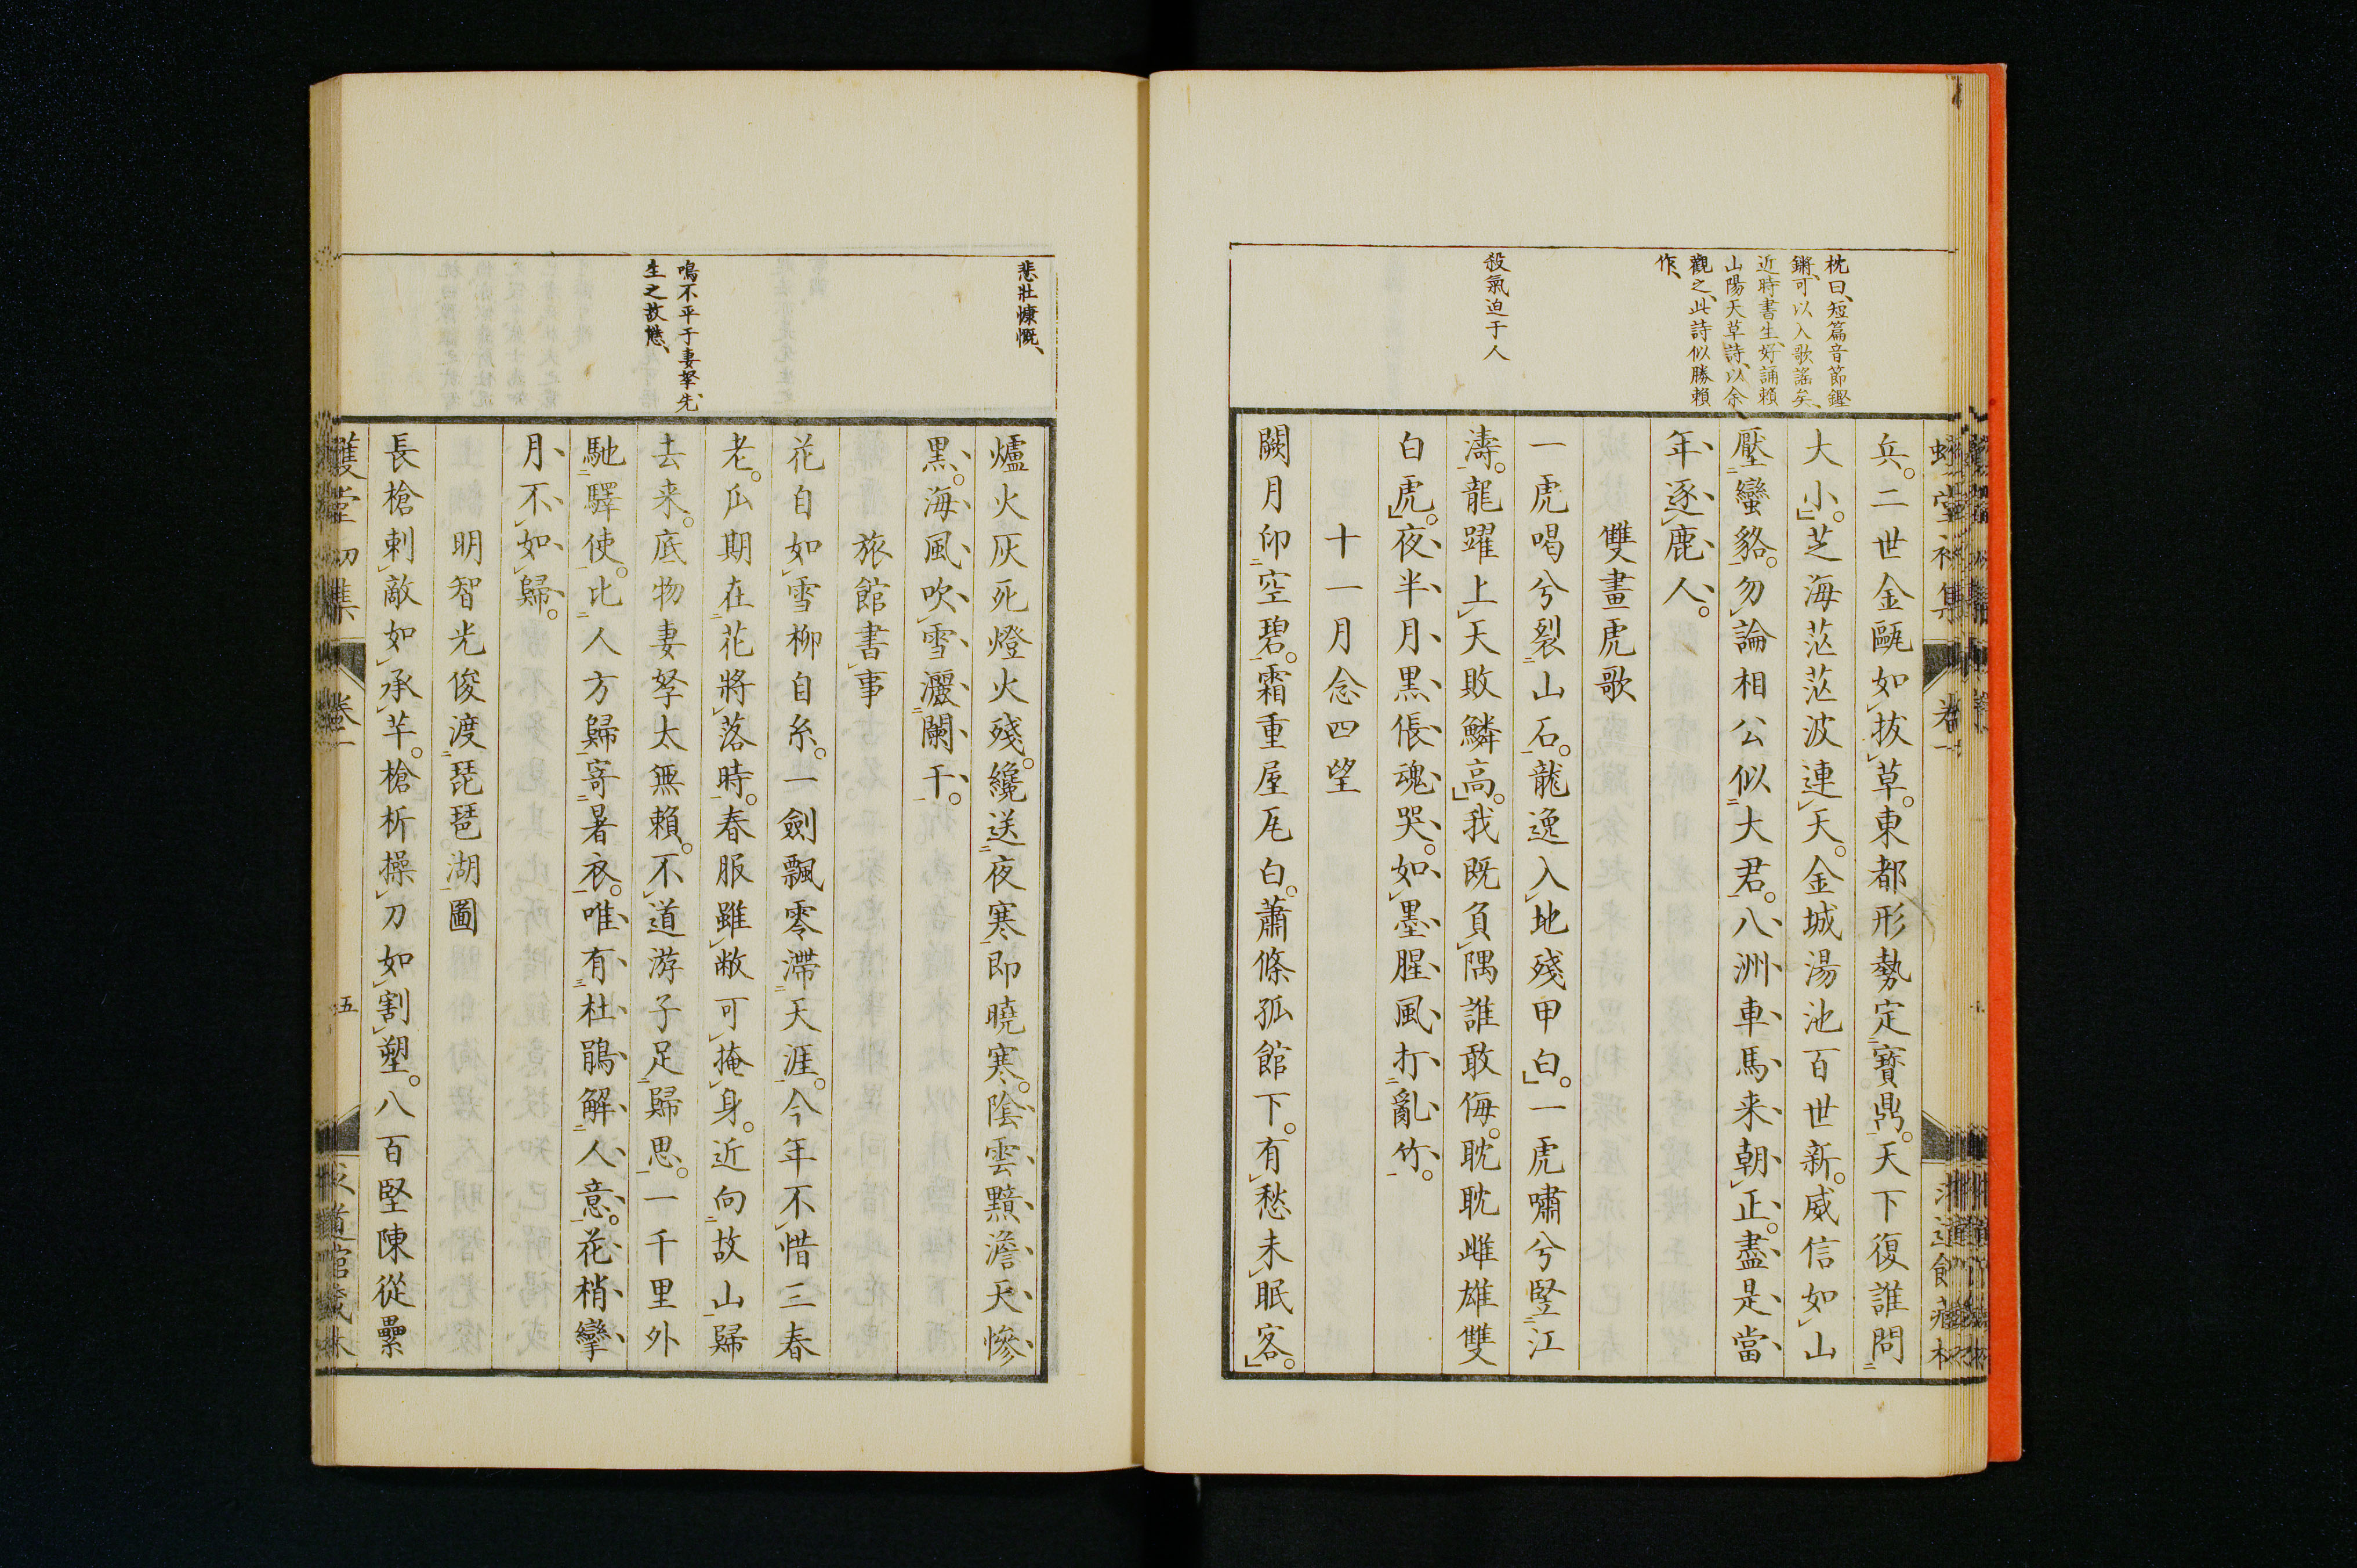 枕曰、短篇音節鏗
鏘、可以入歌謠矣、
近時書生、好誦賴
山陽天草詩、以余
觀之、此詩似勝賴
作、
殺氣迫于人
兵。二世金甌如拔草。東都形勢定寶鼎。天下復誰問
大小。芝海茫茫波連天。金城湯池百世新。威信如山
壓蠻貉。勿論相公似大君。八洲車馬来朝正。盡是當
年逐鹿人。
雙畫虎歌
一虎喝兮裂山石。龍逸入地殘甲白。一虎嘯兮竪江
濤。龍躍上天敗鱗高。我既負隅誰敢侮。耽耽雌雄雙
白虎。夜半月黑倀魂哭。如墨腥風打亂竹。
十一月念四望
闕月印空碧。霜重屋瓦白。蕭條孤館下。有愁未眠客。
悲壯慷慨、
鳴不平于妻孥、先
生之故態、
爐火灰死燈火殘。纔送夜寒即曉寒。陰雲黯澹天慘
黑。海風吹雪灑闌干。
旅館書事
花自如雪柳自糸。一劍飄零滯天涯。今年不惜三春
老。瓜期在花將落時。春服雖敝可掩身。近向故山歸
去来。底物妻孥太無賴。不道游子足歸思。一千里外
馳驛使。比人方歸寄暑衣。唯有杜鵑解人意。花梢攣
月不如歸。
明智光俊渡琵琶湖圖
長槍刺敵如承芊。槍折操刀如割塑。八百堅陳從纍
卷一
五